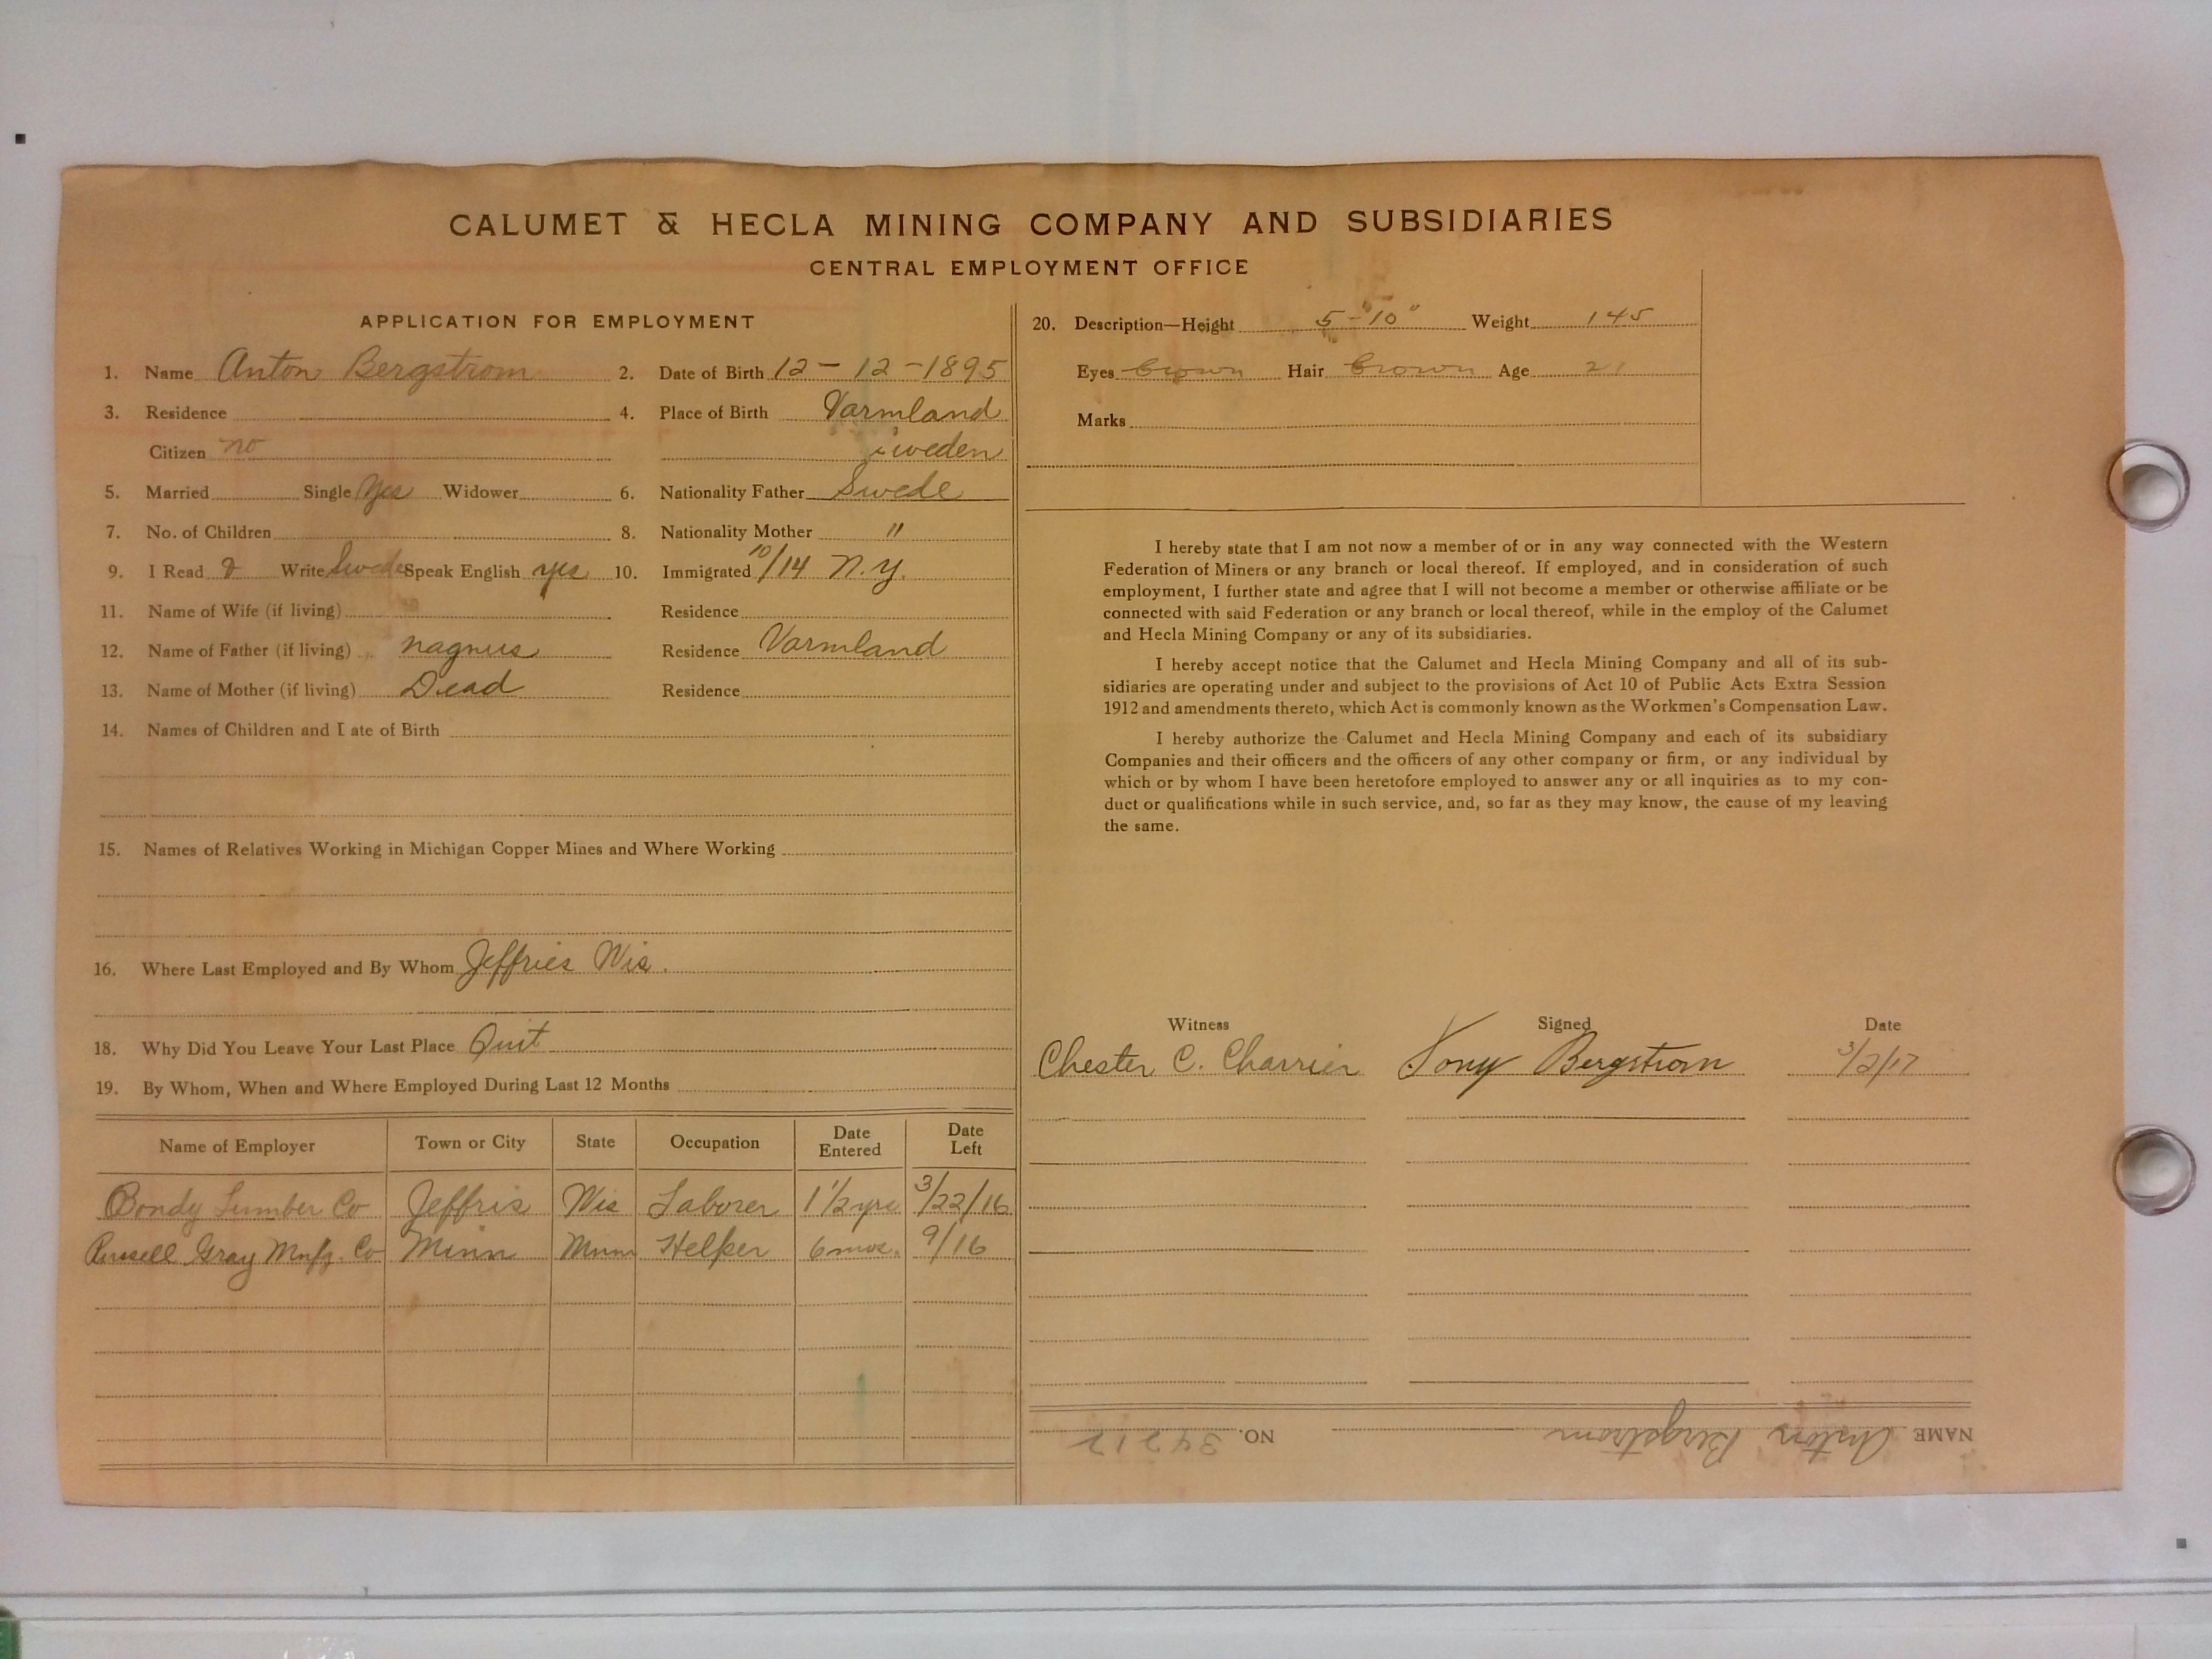 CALUMET & HECLA MINING COMPANY AND SUBSIDIARIES
CENTRAL EMPLOYMENT OFFICE
APPLICATION FOR EMPLOYMENT
1. Name Anton Bergstrom 2. Date of Birth 12 - 12 - 1895
3. Residence 4. Place of Birth Varmland
Citizen no Sweden
5. Married Single Yes Widower 6. Nationality Father Swede
7. No. of Children 8. Nationality Mother "
9. I Read & Write Swede Speak English yes 10. Immigrated 10/14 N.Y.
11. Name of Wife (if living) Residence
12. Name of Father (if living) nagnus Residence Varmland
13. Name of Mother (if living) Dead Residence
14. Names of Children and Date of Birth
15. Names of Relatives Working in Michigan Copper Mines and Where Working
16. Where Last Employed and By Whom Jeffries Wis.
18. Why Did You Leave Your Last Place Quit
19. By Whom, When and Where Employed During Last 12 Months
Name of Employer Town or City State Occupation Date Entered Date Left
Bondy Lumber Co Jeffris Wis Laborer 1 1/2 yrs 3/22/16
Russell Gray Mnfg. Co Minn Minn Helper 6 mos. 9/16
20. Description—Height 5-"10" Weight 145
Eyes brown Hair brown Age 21
Marks
I hereby state that I am not now a member of or in any way connected with the Western
Federation of Miners or any branch or local thereof. If employed, and in consideration of such
employment, I further state and agree that I will not become a member or otherwise affiliate or be
connected with said Federation or any branch or local thereof, while in the employ of the Calumet
and Hecla Mining Company or any of its subsidiaries.
I hereby accept notice that the Calumet and Hecla Mining Company and all of its sub-
sidiaries are operating under and subject to the provisions of Act 10 of Public Acts Extra Session
1912 and amendments thereto, which Act is commonly known as the Workmen's Compensation Law.
I hereby authorize the Calumet and Hecla Mining Company and each of its subsidiary
Companies and their officers and the officers of any other company or firm, or any individual by
which or by whom I have been heretofore employed to answer any or all inquiries as to my con-
duct or qualifications while in such service, and, so far as they may know, the cause of my leaving
the same.
Witness Signed Date
Chester C. Charrier Tony Bergstrom 3/2/17
NAME Anton Bergstrom NO. 34212